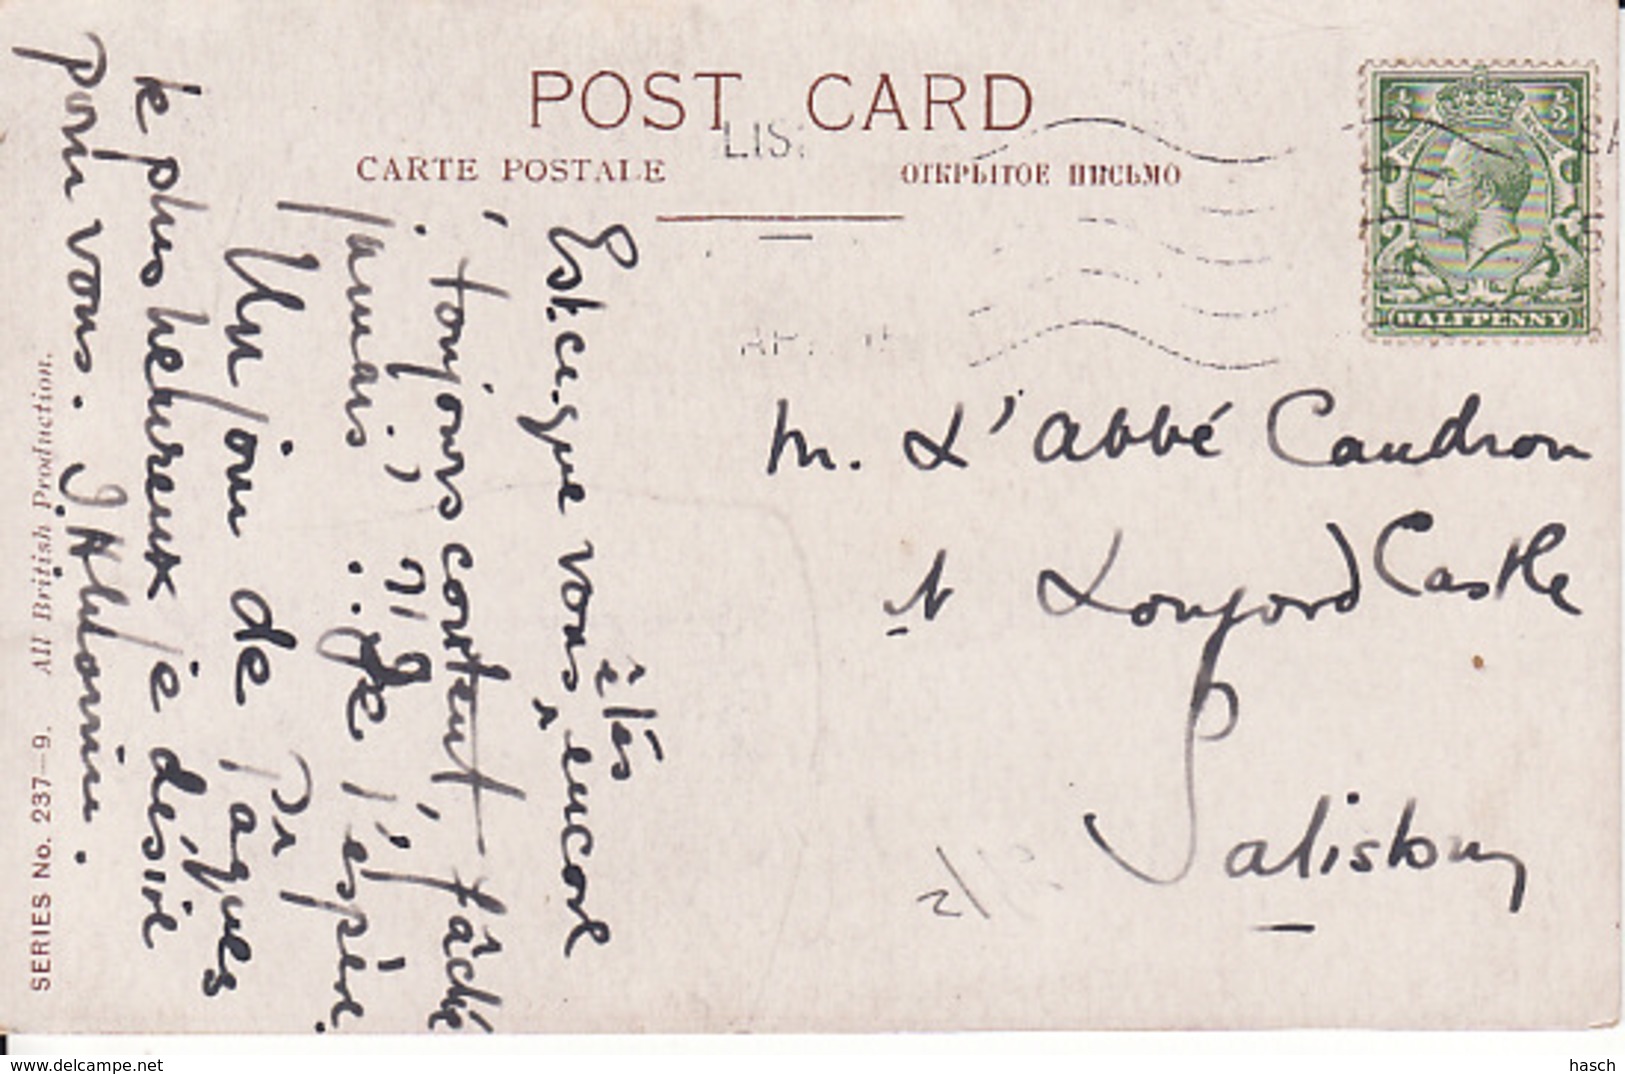 POST CARD
CARTE POSTALE
ОТКРЫТОЕ ПИСЬМО
LIS.
HALFPENNY
M. L'abbé Caudron
Longford Castle
Salisbury
Est-ce-que vous êtes encore
toujours fâché
jamais, ?! ? . . Je l'espère.
Un jour de Pâques
le plus heureux je désire
pour vous.
SERIES No. 237—9. All British Production.
delcampe.net
hasch